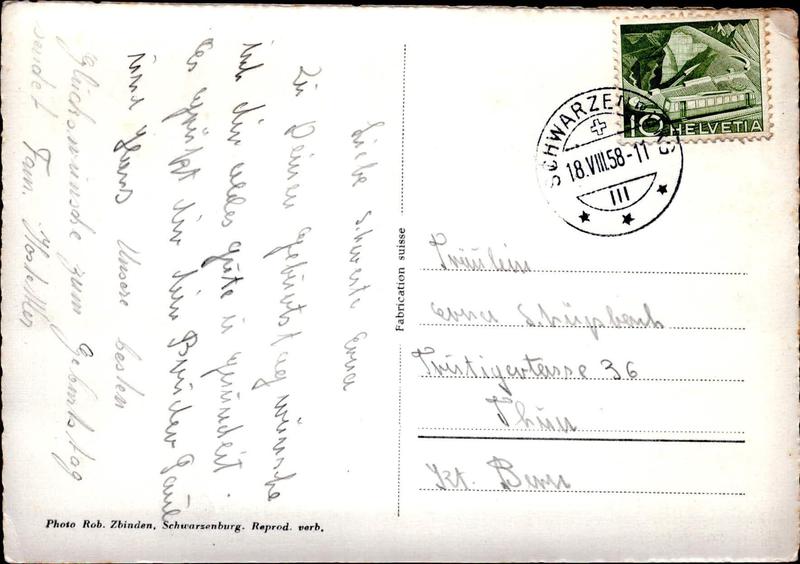 Liebe Schweste Erna
Zu Deinen geburtstag wünsche
ich dir alles gute u gesundheit.
Es grüßt dir dein Bruder Paul
und Hans Unsere besten
Glückwünsche zum Geburtstag
sendet Fam. Hostettler
Photo Rob. Zbinden, Schwarzenburg. Reprod. verb.
Fabrication suisse
10 HELVETIA
SCHWARZENBURG
18.VIII.58-11
III
Fräulein
Erna Schügsbach
Frutigertrasse 36
Thun
Kt. Bern